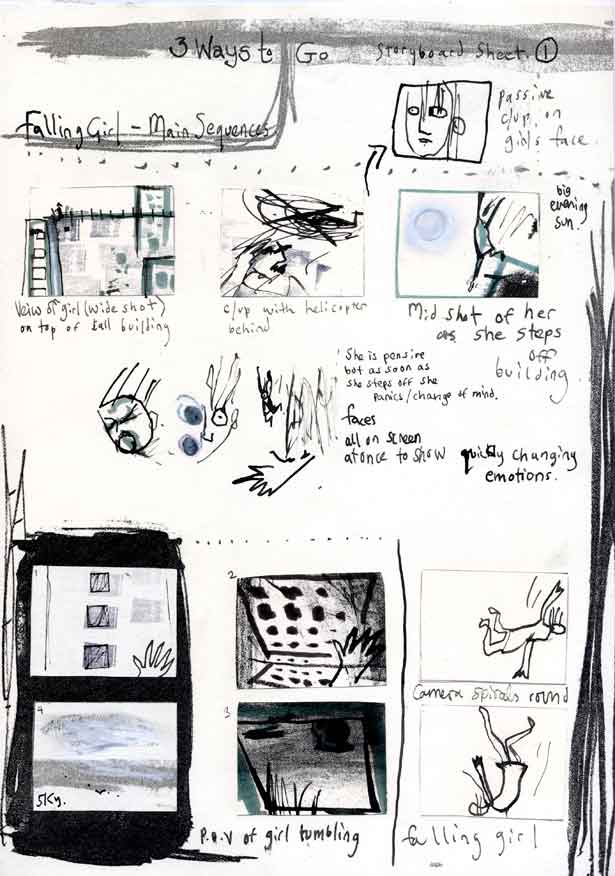 3 Ways to Go
Storyboard Sheet 1
Falling Girl – Main Sequences
passive
c/up, on
girls face.
big
evening
sun.
Veiw of girl (wide shot)
on top of tall building
c/up with helicopter
behind
Mid shot of her
as she steps
off
building.
She is pensive
but as soon as
she steps off she
panics/change of mind.
faces
all on screen
at once to show quickly changing
emotions.
2
3
4
Sky.
P.O.V of girl tumbling
Camera spirals round
falling girl